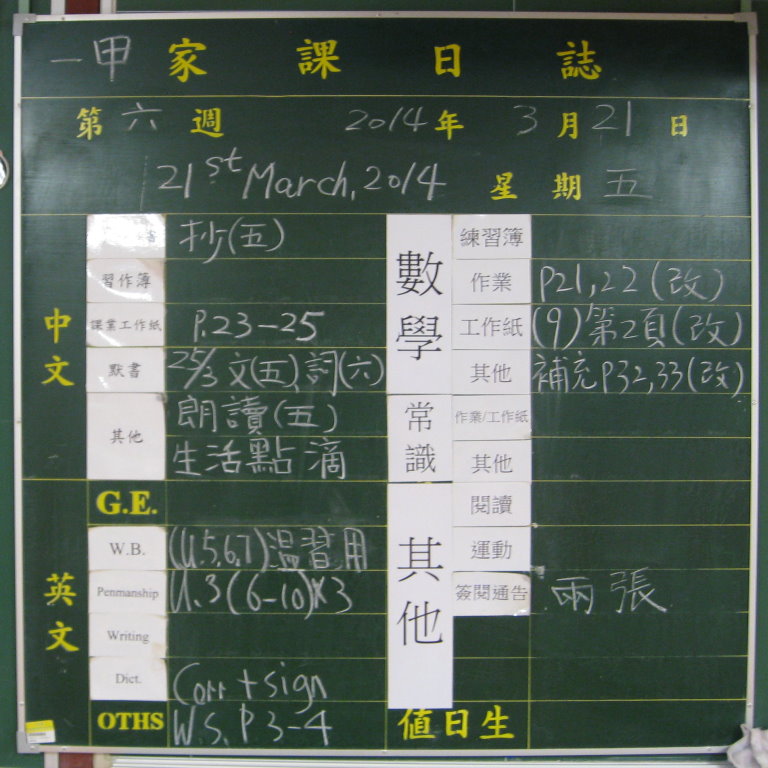 一甲 家課日誌
第六週 2014年3月21日
21st March, 2014 星期五
中文
抄(五)
習作簿
課業工作紙 P.23-25
默書 25/3 文(五)、詞(六)
其他 朗讀(五)
生活點滴
英文
G.E.
W.B. (U.5,6,7)溫習用
Penmanship U.3(6-10)×3
Writing
Dict. Corr + sign
OTHS W.S. P 3-4
數學
練習簿
作業 P21,22(改)
工作紙 (9)第2頁(改)
其他 補充P32,33(改)
常識
作業/工作紙
其他
其他
閱讀
運動
簽閱通告 兩張
值日生